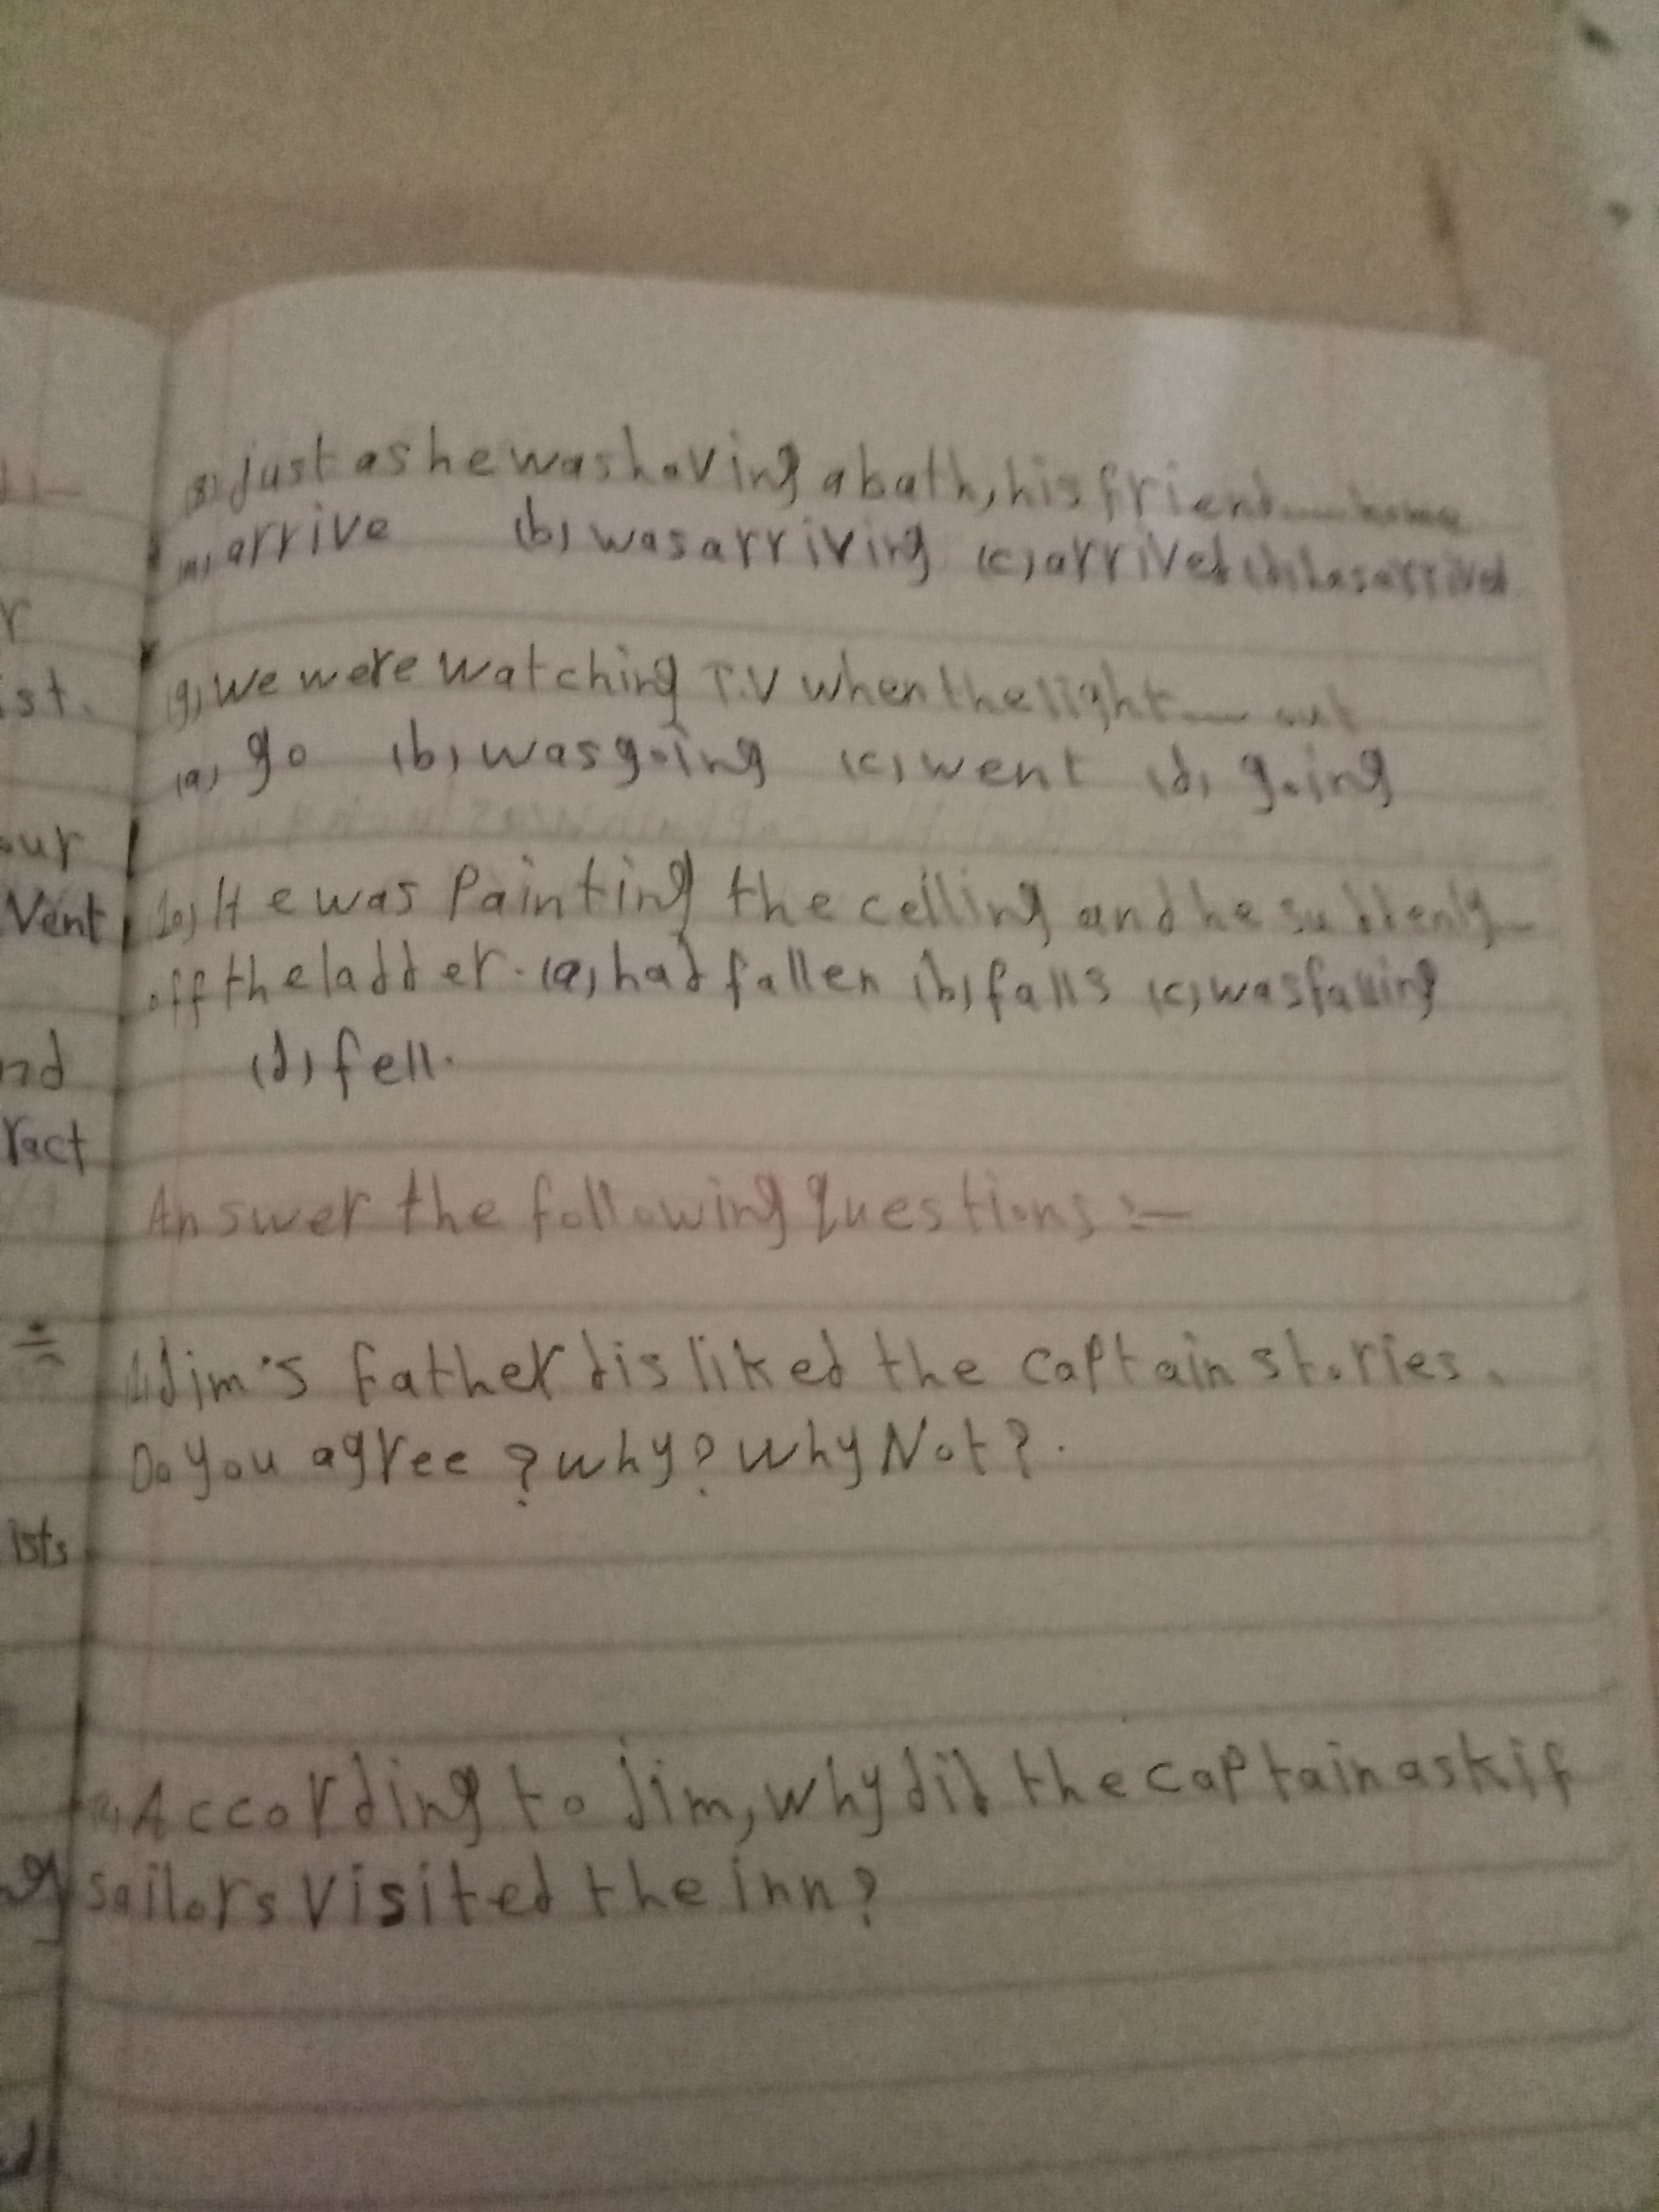 (8) just as he was having a bath, his friend ___ home
(a) arrive (b) was arriving (c) arrived (d) has arrived
(9) we were watching T.V when the light ___ out
(a) go (b) was going (c) went (d) going
10) He was Painting the ceiling and he suddenly
off the ladder. (a) had fallen (b) falls (c) was falling
(d) fell.
Answer the following questions :-
1) Jim's father disliked the captain stories.
Do you agree ? why? why Not?.
2) According to Jim, why did the captain ask if
sailors visited the inn?
r
ist.
our
Vent
nd
ract
ists